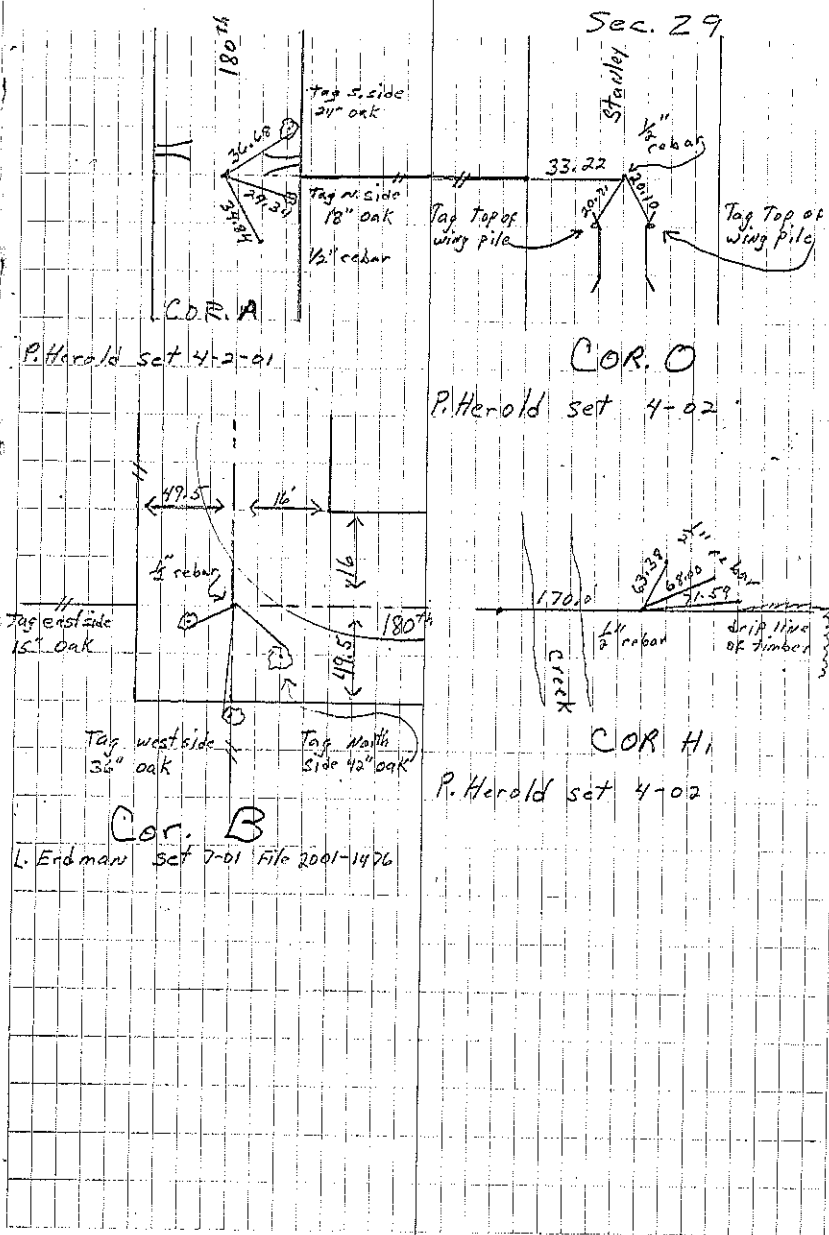 Sec. 29
180th
Tag S. side
24" oak
36.68
29.34
39.84
Tag N. side
18" oak
1/2" rebar
COR. A
P. Herold set 4-2-01
Stanley
1/2"
rebar
33.22
20.71
20.10
Tag Top of
wing pile
Tag Top of
wing pile
COR. O
P. Herold set 4-02
49.5
16'
1/2" rebar
416
Tag east side
15" oak
180th
49.5
Tag west side
36" oak
Tag North
Side 42" oak
Cor. B
L. Erdman set 7-01 File 2001-1476
170.0'
Creek
63.38
68.00
71.59
rebar
1/2" rebar
drip line
of timber
COR H1
P. Herold set 4-02